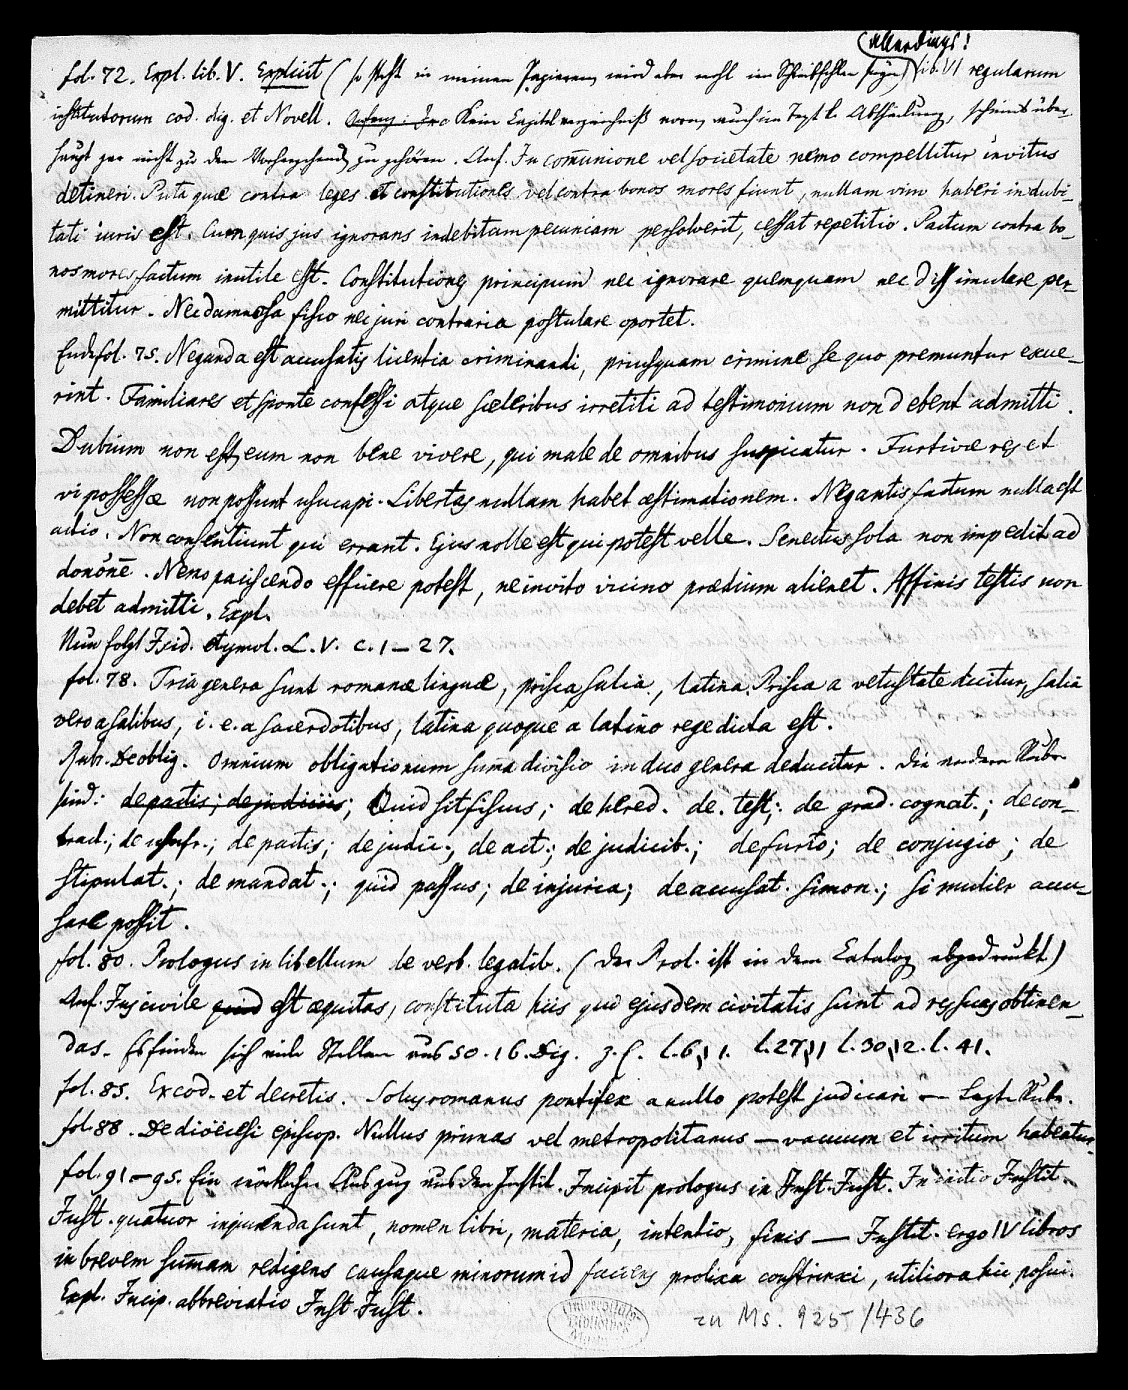 allerdings!
fol. 72. Expl. lib. V. Explicit (so steht in meinen Papieren, wird aber wohl ein Schreibfehler seyn) lib. VI regularum
institutorum cod. dig. et Novell. Anfang: Inc Kein Capitelverzeichniß vorn, auch im Text k. Abtheilung, scheint über-
haupt gar nicht zu dem Vorhergehend. zu gehören. Anf. In com̄unione vel societate nemo compellitur invitus
detineri. Puta quæ contra leges et constitutiones vel contra bonos mores fiunt, nullam vim haberi indubi-
tati iuris est. Cum quis jus ignorans indebitam pecuniam persolverit, cessat repetitio. Pactum contra bo-
nos mores factum inutile est. Constitutiones principum nec ignorare quemquam nec dissimulare per-
mittitur. Nec damnosa fisco nec juri contraria postulare oportet.
Ende fol. 75. Neganda est accusatis licentia criminandi, priusquam crimine se quo premuntur exue-
rint. Familiares et sponte confessi atque sceleribus irretiti ad testimonium non debent admitti.
Dubium non est, eum non bene vivere, qui male de omnibus suspicatur. Furtivæ res et
vi possessæ non possunt usucapi. Libertas nullam habet æstimationem. Negantis factum nulla est
actio. Non consentiunt qui errant. Ejus nolle est qui potest velle. Senectus sola non impedit ad
donōnē. Nemo paciscendo efficere potest, ne invito vicino prædium alienet. Affinis testis non
debet admitti. Expl.
Nun folgt Isid. etymol. L. V. c. 1–27.
fol. 78. Tria genera sunt romanæ linguæ, prisca salia, latina. Prisca a vetustate dicitur, salia
vero a salibus, i. e. a sacerdotibus, latina quoque a latino rege dicta est.
Rubr. De oblig. Omnium obligationum sum̄a divisio in duo genera deducitur. Die andern Rubr.
sind: de pactis; de judiciis; Quid sit fiscus; de hered. de. test.; de grad. cognat.; de con-
tract.; de usufr.; de pactis; de judic.; de act.; de judicib.; de furto; de conjugio; de
stipulat.; de mandat.; quid passus; de injuria; de accusat. simon.; si mulier accu-
sare possit.
fol. 80. Prologus in libellum de verb. legalib. (der Prol. ist in dem Catalog abgedruckt)
Anf. Jus civile quid est æquitas, constituta hiis qui ejusdem civitatis sunt ad res suas obtinen-
das. Es finden sich viele Stellen aus 50. 16. Dig. z. E. l. 6 § 1. l. 27 § 1 l. 30 § 2. l. 41.
fol. 85. Ex cod. et decretis. Solus romanus pontifex a nullo potest judicari — Letzte Rubr.
fol. 88. De diœcesi episcop. Nullus primas vel metropolitanus — vacuum et irritum habeatur.
fol. 91–95. Ein wörtlicher Auszug aus den Instit. Incipit prologus in Inst. Just. In initio Instit.
Just. quatuor inquirenda sunt, nomen libri, materia, intentio, finis — Instit. ergo IV libros
in brevem sum̄am redigens causaque minorum id faciens prolixa constrinxi, utiliora hic posui.
Expl. Incip. abbreviatio Inst. Just.
Universitäts-
Bibliothek
zu Ms. 925 / 436